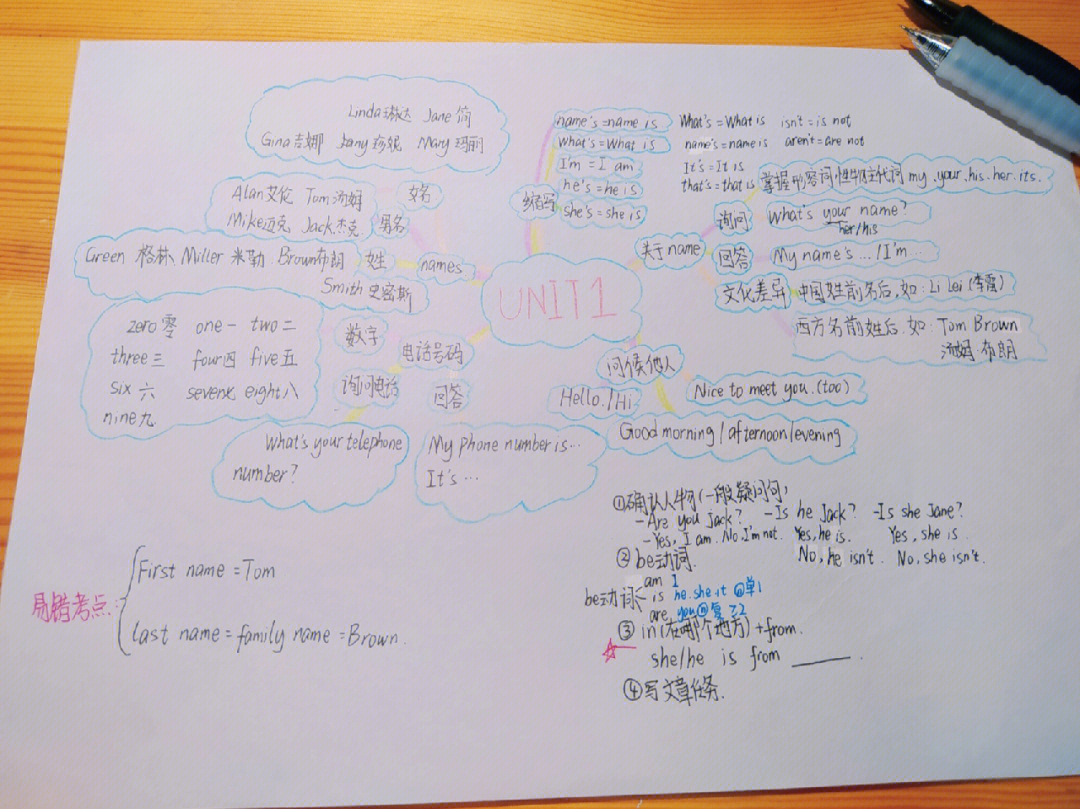 Linda琳达 Jane 简
Gina吉娜 Jany珍妮 Mary玛丽
女名
Alan艾伦 Tom汤姆
Mike迈克 Jack杰克
男名
Green 格林 Miller 米勒 Brown布朗
Smith 史密斯
姓
names
UNIT1
数字
zero 零 one 一 two 二
three 三 four四 five 五
six 六 seven七 eight八
nine九
电话号码
询问电话
回答
What's your telephone
number?
My phone number is…
It's…
缩写
name's = name is
what's = What is
I'm = I am
he's = he is
she's = she is
What's = What is isn't = is not
name's = name is aren't = are not
It's = It is
that's = that is
掌握形容词性物主代词 my.your.his.her.its.
关于name
询问
What's your name?
her/his
回答
My name's…/I'm…
文化差异
中国姓前名后,如:Li Lei (李雷)
西方名前姓后.如:Tom Brown
汤姆 布朗
问候他人
Hello./Hi
Nice to meet you.(too)
Good morning/afternoon/evening
①确认人物(一般疑问句)
-Are you Jack? -Is he Jack? -Is she Jane?
-Yes, I am. No, I'm not. Yes, he is. Yes, she is.
No, he isn't. No, she isn't.
②be动词.
be动词
am I
is he.she.it
are you
③in(在哪个地方)+from.
she/he is from ____.
④写文章任务.
易错考点:
First name = Tom
last name = family name = Brown.